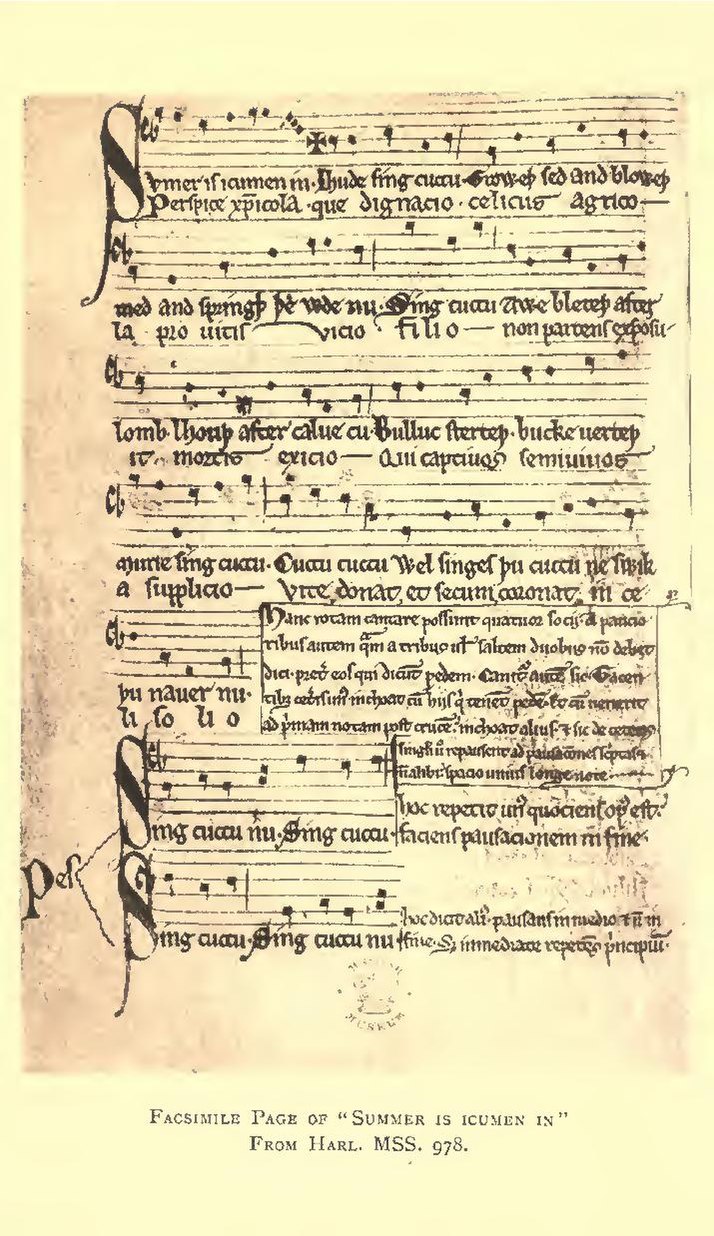 Sumer is icumen in· Lhude sing cuccu· Groweþ sed and bloweþ
Perspice xp̄icola· que dignacio· celicus agrico—
med and springþ þe wde nu· Sing cuccu Awe bleteþ after
la pro uitis vicio filio— non parcens exposu-
lomb· lhouþ after calue cu· Bulluc sterteþ· bucke uerteþ
it· mortis exicio— Qui captiuos semiuiuos
murie sing cuccu· Cuccu cuccu Wel singes þu cuccu ne swik
a supplicio— Vite donat, et secum coronat, in ce
þu nauer nu·
li so li o
Hanc rotam cantare possunt quatuor socij· A paucio
ribus autem q̄m a tribus uł saltem duobus nō debet
dici· pret̉ eos qui dicūt pedem· Canit᷑ aut̄ sic· Tacen
tibȝ cet̉is unus inchoat cū hijs q̇ tenēt pedē· Et cū uenerit
ad p̄mam notam post crucē· inchoat alius· ⁊ sic de ceteris
singłi ū repausent ad pausacōnes scptas ⁊
ñ alibi· spacio unius longe note
Pes
Sing cuccu nu· Sing cuccu·
hoc repetit un᷒ quociens op᷒ est·
faciens pausacionem in fine·
Sing cuccu· Sing cuccu nu
hoc dicit ali᷒· pausans in medio ⁊ ñ in
fine· Sȝ immediate repetēs p̄ncipiū·
MUSEUM
Facsimile Page of "Summer is icumen in"
From Harl. MSS. 978.